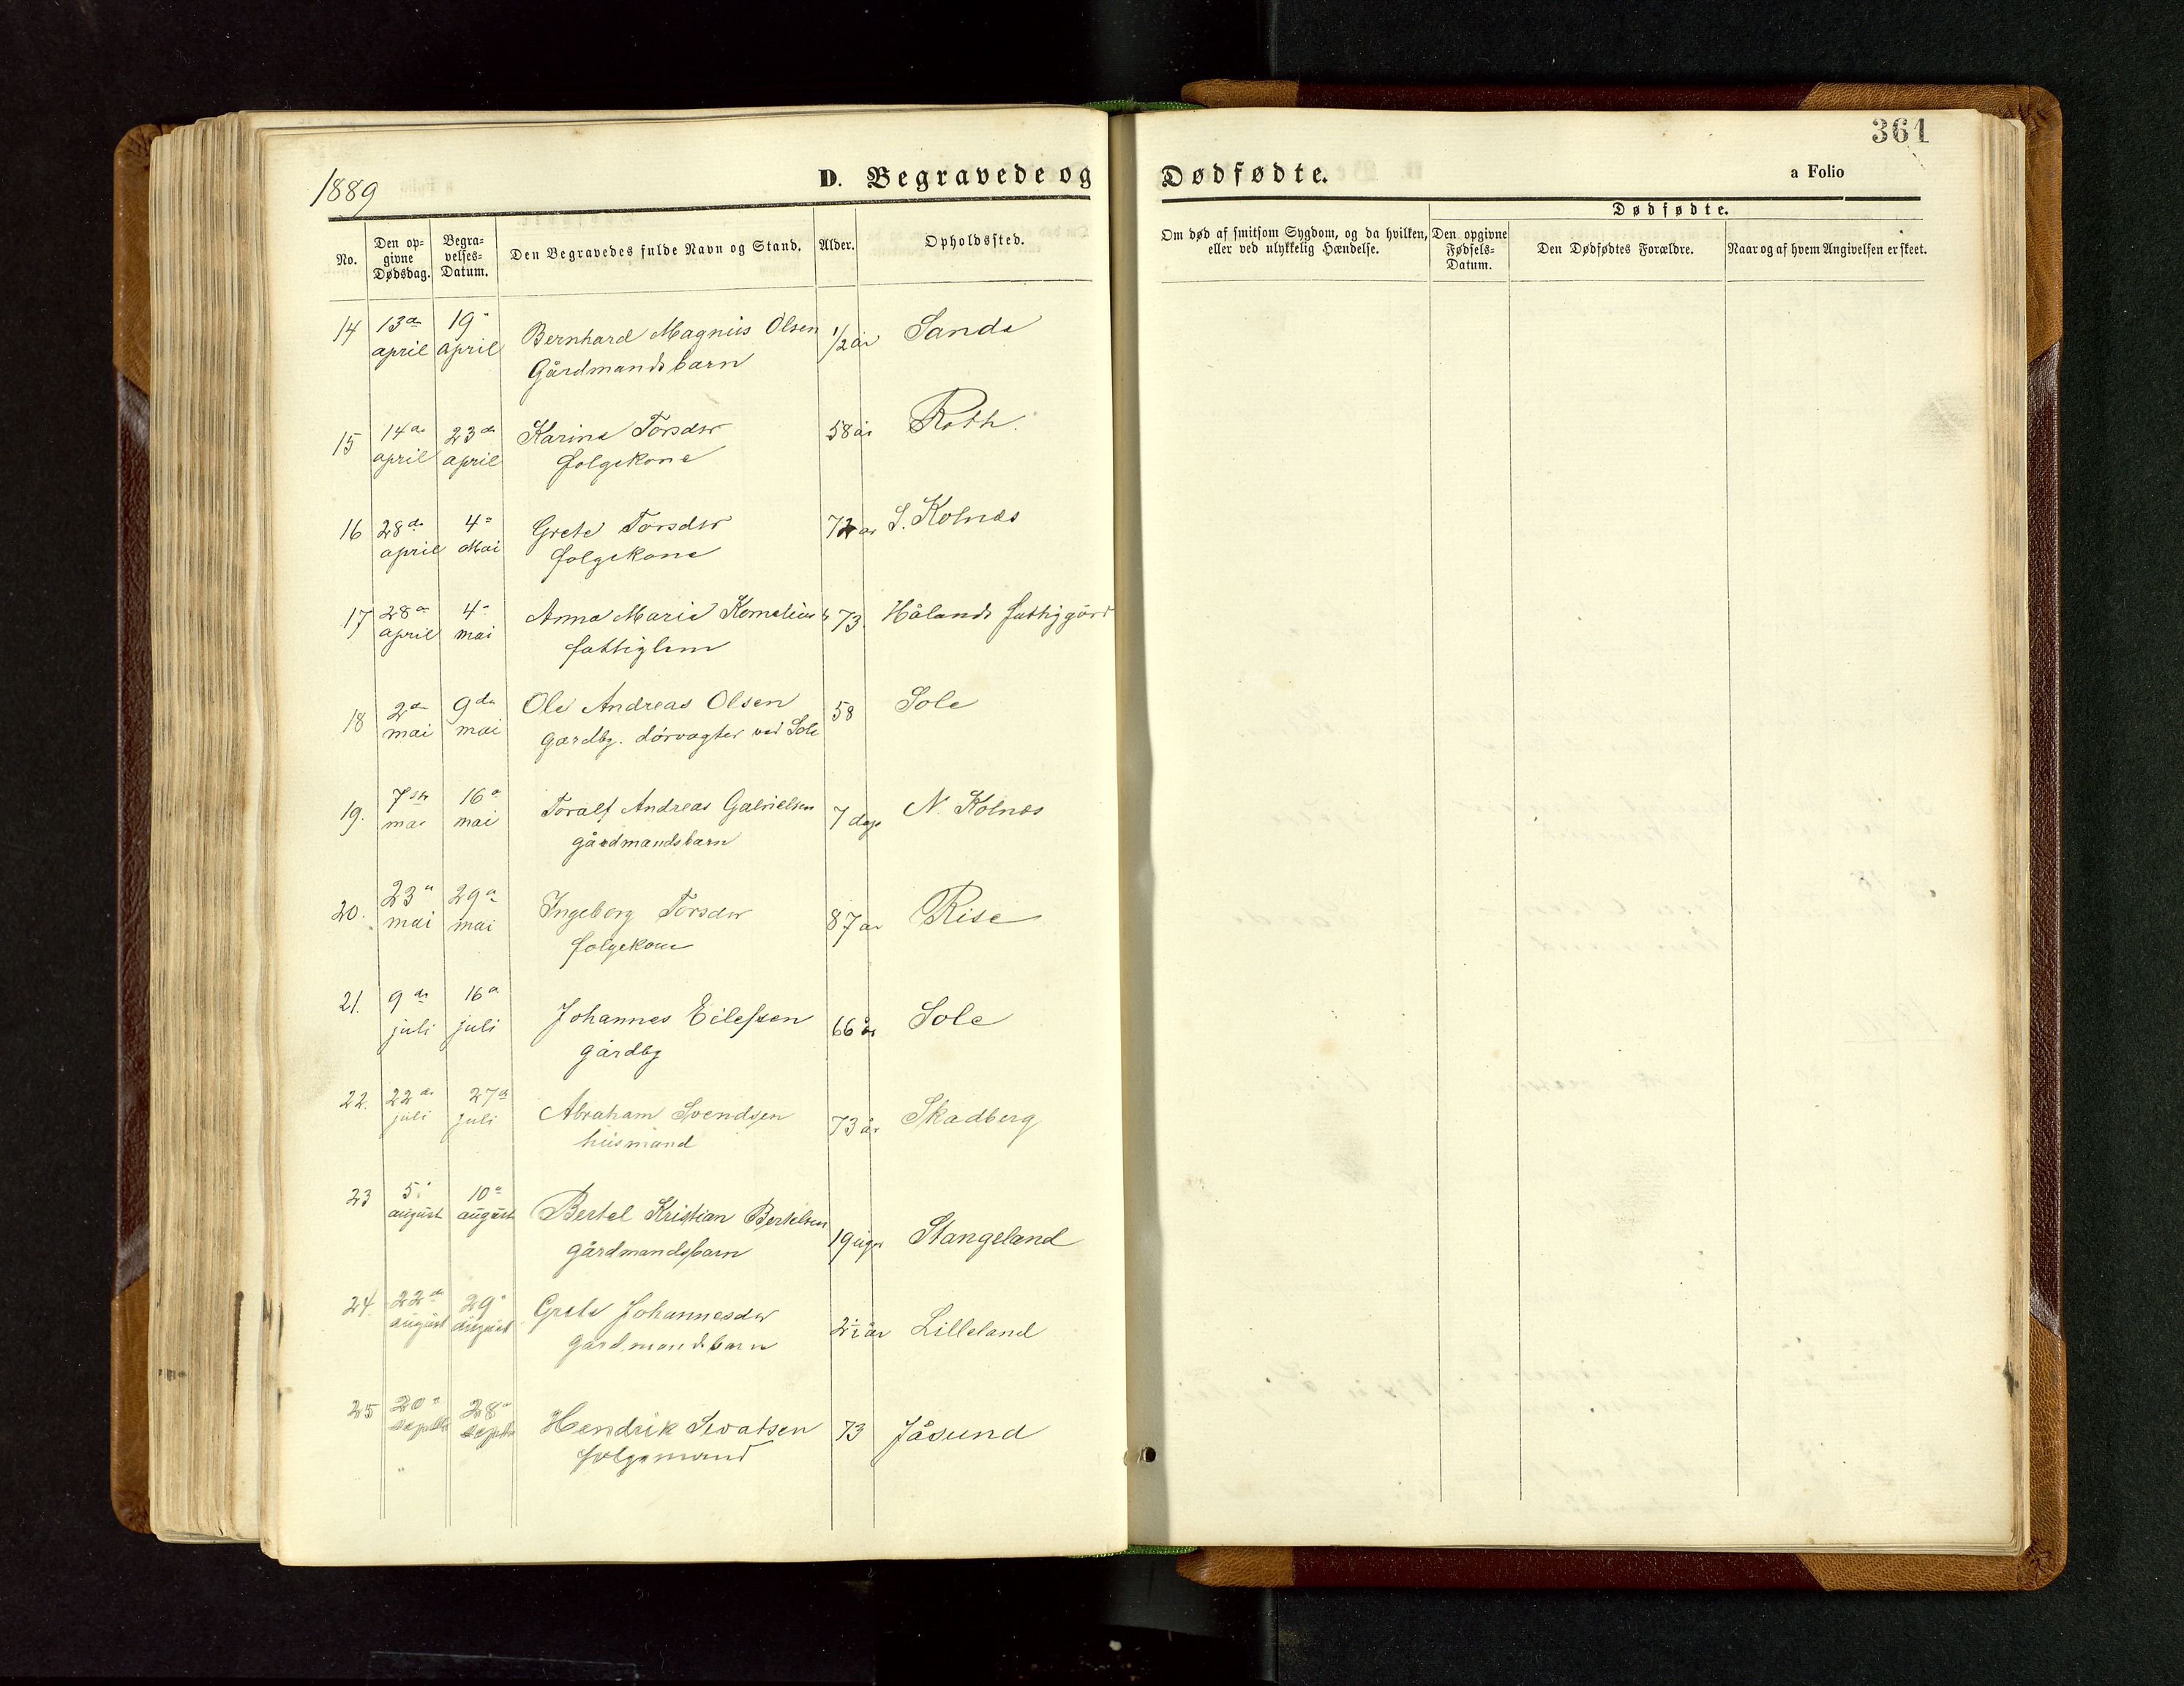 361
1889
D. Begravede og Dødfødte.
a Folio
No.
Den opgivne Dødsdag.
Begravelses-Datum.
Den Begravedes fulde Navn og Stand.
Alder.
Opholdssted.
Om død af smitsom Sygdom, og da hvilken, eller ved ulykkelig Hændelse.
Dødfødte.
Den opgivne Fødsels-Datum.
Den Dødfødtes Forældre.
Naar og af hvem Angivelsen er skeet.
14 13de april 19 april Bernhard Magnus Olsen 1/2 år Sande
Gårdmandsbarn
15 14de april 23de april Karine Torsdtr 58 år Roth.
folgekone
16 28de april 4de Mai Grete Torsdtr 72 år S. Kolnæs
folgekone
17 28de april 4de mai Anna Maria 73 Hålands fattiggård
fattiglem
18 2de mai 9de mai Ole Andreas Olsen 58 Sole
gardbg. dørvogter ved Sole
19. 7de mai 16de mai Toralf Andreas Gabrielsen 7 dage N. Kolnæs
gårdmandsbarn
20. 23de mai 29de mai Ingeborg Torsdtr 87 år Rise
folgekone
21. 9de juli 16de juli Johannes Eilefsen 66 år Sole
gårdbg
22. 22de juli 27de juli Abraham Svendsen 73 år Skadberg
husmand
23 5 august 10de august Bertel Kristian Bertelsen 19 uger Stangeland
gårdmandsbarn
24. 22de august 29 august Grete Johannesdtr år Lilleland
gårdmandsbarn
25 20 septbr 28 septbr Hendrik Sivatsen 73 Jåsund
folgemand